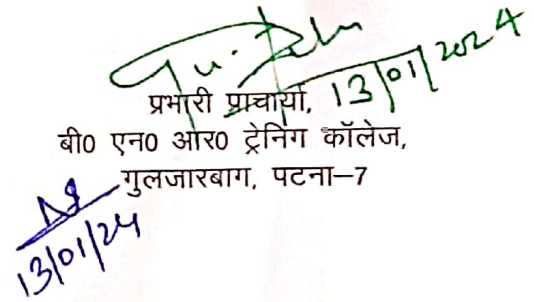 13/01/2024
प्रभारी प्राचार्या,
बी0 एन0 आर0 ट्रेनिंग कॉलेज,
गुलजारबाग, पटना–7
13/01/24